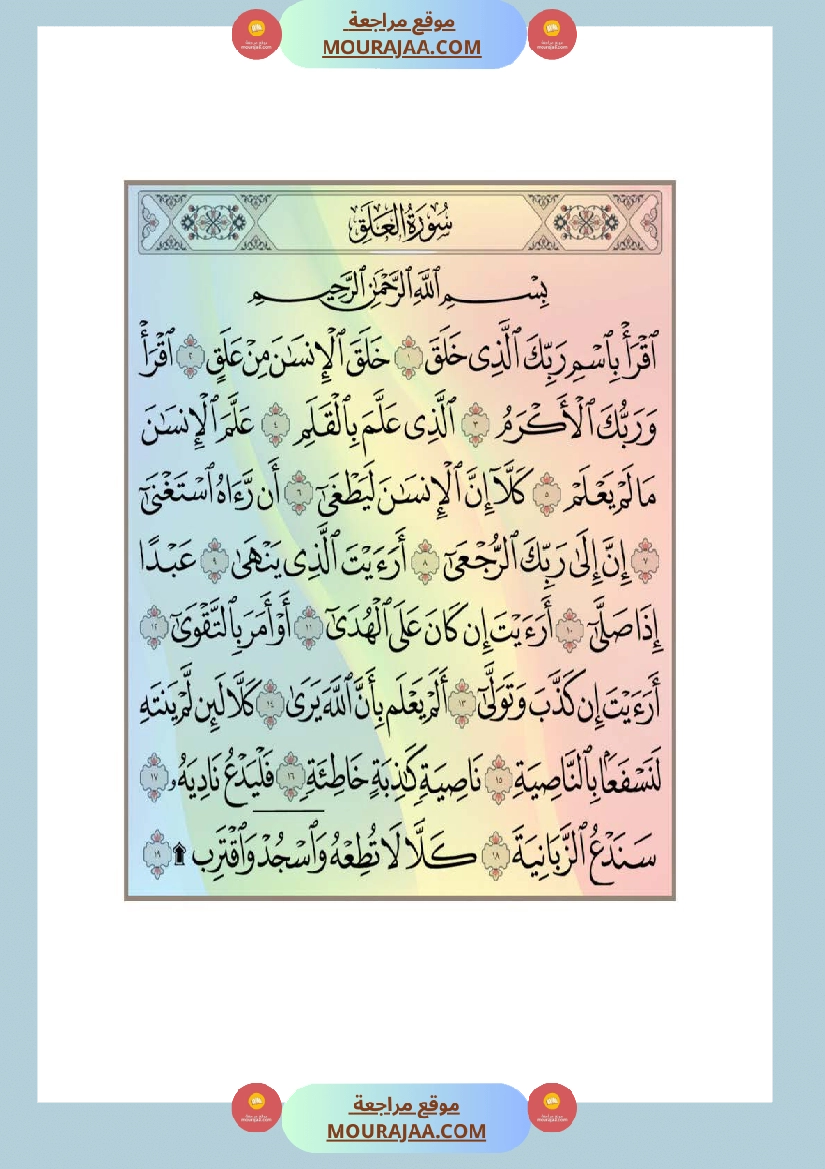 موقع مراجعة
MOURAJAA.COM
سُورَةُ العَلَقِ
بِسْمِ ٱللَّهِ ٱلرَّحْمَٰنِ ٱلرَّحِيمِ
ٱقْرَأْ بِٱسْمِ رَبِّكَ ٱلَّذِى خَلَقَ ١ خَلَقَ ٱلْإِنسَٰنَ مِنْ عَلَقٍ ٢ ٱقْرَأْ
وَرَبُّكَ ٱلْأَكْرَمُ ٣ ٱلَّذِى عَلَّمَ بِٱلْقَلَمِ ٤ عَلَّمَ ٱلْإِنسَٰنَ
مَا لَمْ يَعْلَمْ ٥ كَلَّآ إِنَّ ٱلْإِنسَٰنَ لَيَطْغَىٰٓ ٦ أَن رَّءَاهُ ٱسْتَغْنَىٰٓ
٧ إِنَّ إِلَىٰ رَبِّكَ ٱلرُّجْعَىٰٓ ٨ أَرَءَيْتَ ٱلَّذِى يَنْهَىٰ ٩ عَبْدًا
إِذَا صَلَّىٰٓ ١٠ أَرَءَيْتَ إِن كَانَ عَلَى ٱلْهُدَىٰٓ ١١ أَوْ أَمَرَ بِٱلتَّقْوَىٰٓ ١٢
أَرَءَيْتَ إِن كَذَّبَ وَتَوَلَّىٰٓ ١٣ أَلَمْ يَعْلَم بِأَنَّ ٱللَّهَ يَرَىٰ ١٤ كَلَّا لَئِن لَّمْ يَنتَهِ
لَنَسْفَعًۢا بِٱلنَّاصِيَةِ ١٥ نَاصِيَةٍ كَٰذِبَةٍ خَاطِئَةٍ ١٦ فَلْيَدْعُ نَادِيَهُۥ ١٧
سَنَدْعُ ٱلزَّبَانِيَةَ ١٨ كَلَّا لَا تُطِعْهُ وَٱسْجُدْ وَٱقْتَرِب ۩ ١٩
موقع مراجعة
MOURAJAA.COM